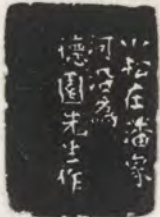 小松在潘家
河爲
德園先生作